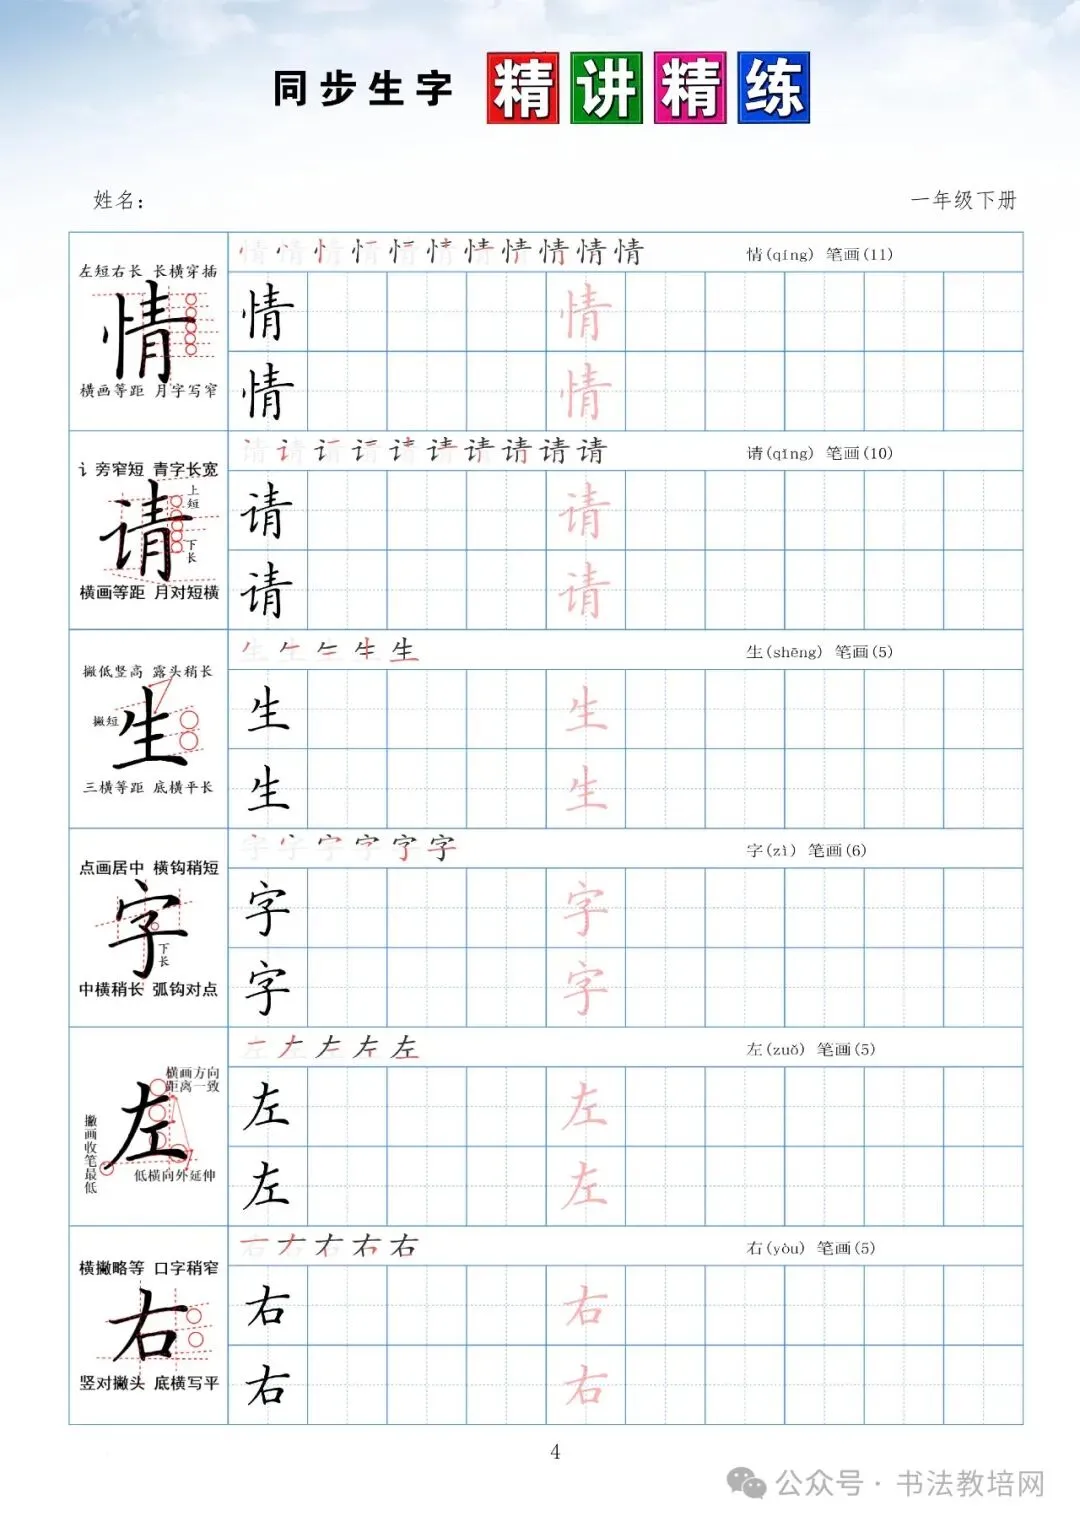 同步生字 精讲精练
姓名：
一年级下册
情情情情情情情情情情情 情(qíng) 笔画(11)
左短右长 长横穿插
情
横画等距 月字写窄
情 情
情 情
请请请请请请请请请请 请(qǐng) 笔画(10)
讠旁窄短 青字长宽
上短
请
下长
横画等距 月对短横
请 请
请 请
生生生生生 生(shēng) 笔画(5)
撇低竖高 露头稍长
撇短
生
三横等距 底横平长
生 生
生 生
字字字字字字 字(zì) 笔画(6)
点画居中 横钩稍短
字
下长
中横稍长 弧钩对点
字 字
字 字
左左左左左 左(zuǒ) 笔画(5)
横画方向
距离一致
左
撇画收笔最低
低横向外延伸
左 左
左 左
右右右右右 右(yòu) 笔画(5)
横撇略等 口字稍窄
右
竖对撇头 底横写平
右 右
右 右
4
公众号·书法教培网